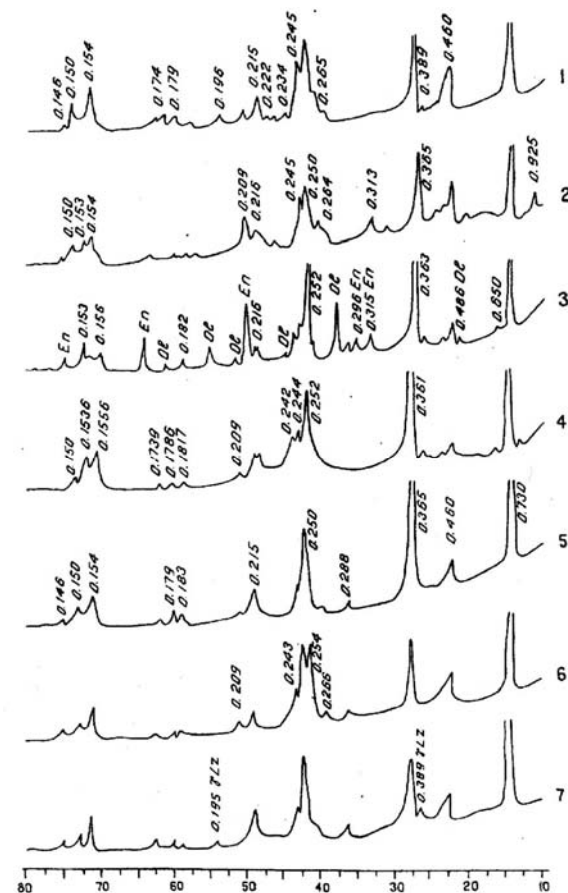 0.146 0.150 0.154 0.174 0.179 0.196 0.215 0.222 0.234 0.245 0.265 0.389 0.460 1
0.150 0.153 0.154 0.209 0.216 0.245 0.250 0.264 0.313 0.365 0.925 2
En 0.153 0.156 En Ol 0.182 Ol Ol En 0.216 Ol 0.252 Ol 0.296 En 0.315 En 0.363 0.486 Ol 0.650 3
0.150 0.1536 0.1556 0.1739 0.1786 0.1817 0.209 0.242 0.244 0.252 0.361 4
0.146 0.150 0.154 0.179 0.183 0.215 0.250 0.288 0.365 0.460 0.730 5
0.209 0.243 0.254 0.266 6
0.195 TLZ 0.389 TLZ 7
80 70 60 50 40 30 20 10